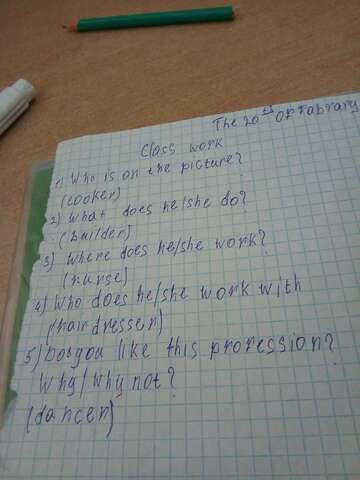 The 20th of Fabrary
Class work
1) Who is on the picture?
(cooker)
2) What does he/she do?
(builder)
3) Where does he/she work?
(nurse)
4) Who does he/she work with
(hairdresser)
5) Do you like this profession?
Why/why not?
(dancer)